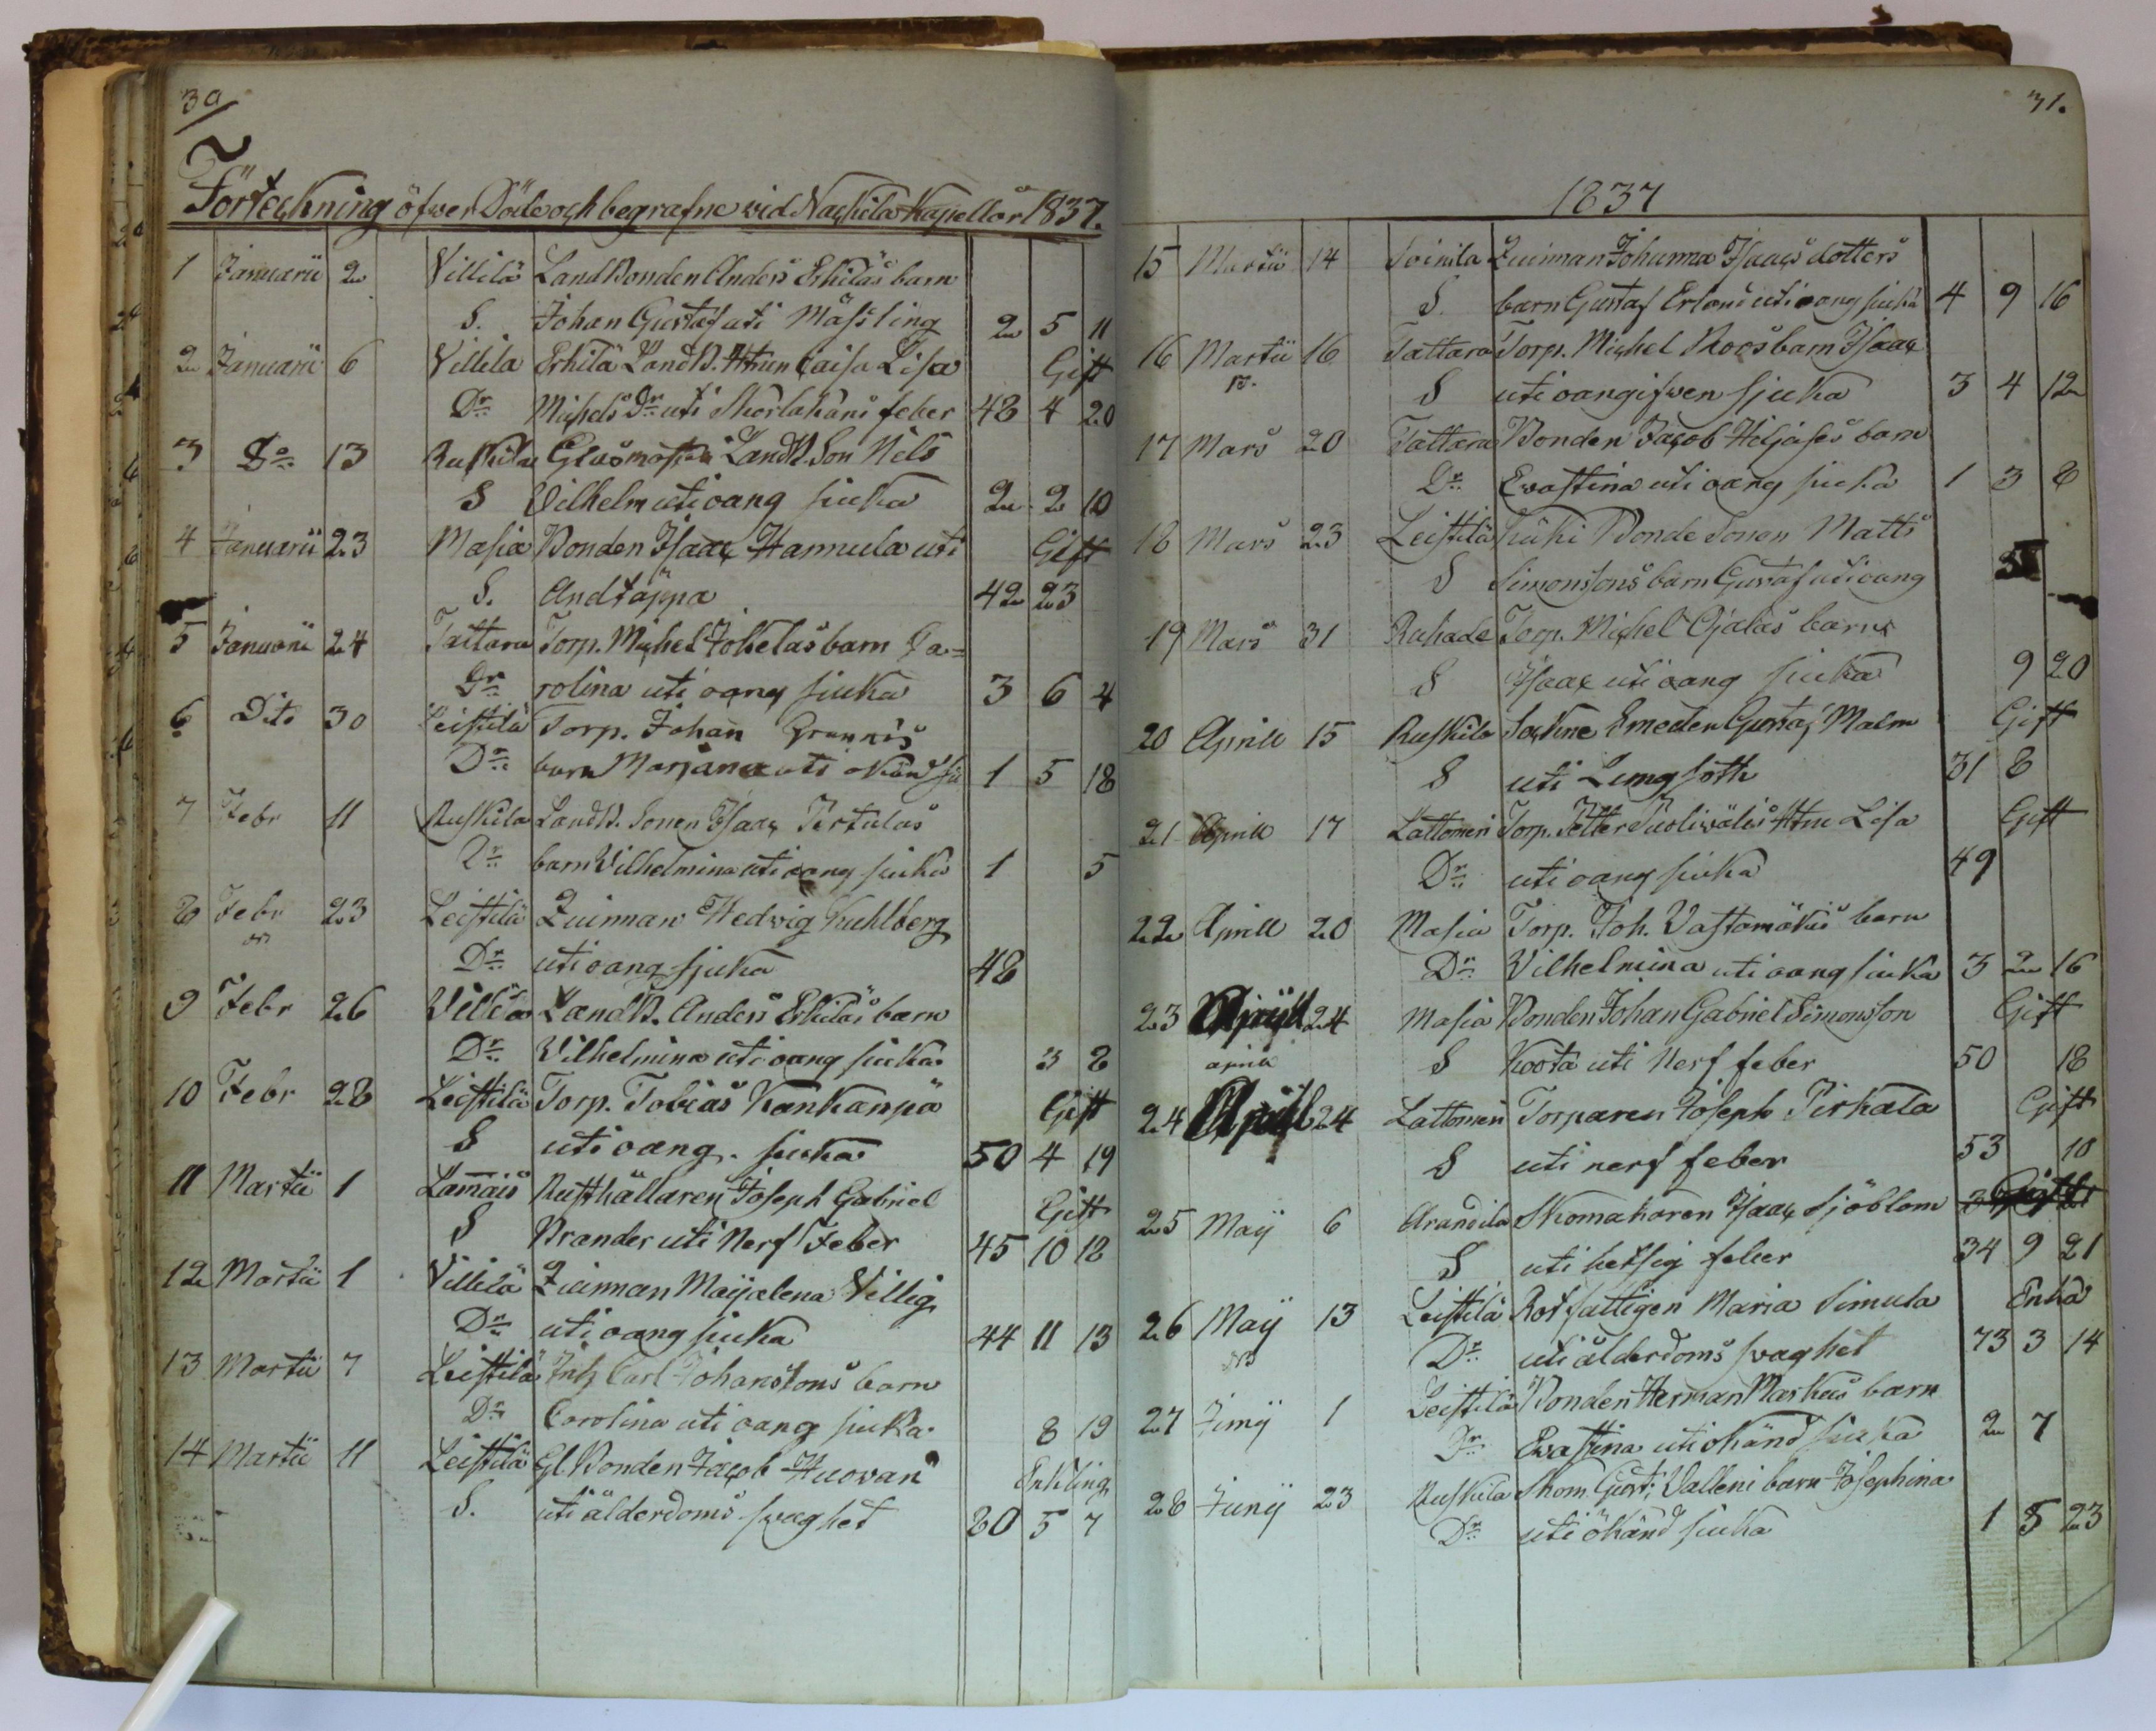 30
Förteckning öfwer Döde och begrafne wid Nackila Kapell år 1837.
1 Januarii 2 Villilä LandBonden Anders Erkiläs barn
S. Johan Gustaf uti Mässling 2 5 11
2 Januarii 6 Villila Erkilä LandB. Hustrun Caisa Lisa Gift
Dr Michels Dr uti Skarlakans feber 48 4 20
3 Do 13 Ruskila LandB. Son Nils
S Vilhelm uti oang siuka 2 2 10
4 Januarii 23 Masia Bonden Isaac Hannula uti Gift
S. Andtäppa 42 23
5 Januarii 24 Tattara Torp. Michel Jokelas barn Ca=
Dr rolina uti oang siuka 3 6 4
6 Dito 30 Leistilä Torp. Johan
Dr barn Marjana uti okänd siu 1 5 18
7 Febr 11 Ruskila LandB. Sonen Isaac Pertulas
Dr barn Vilhelmina uti oang siuka 1 5
8 Febr 23 Leistilä Quinnan Hedwig Kuhlberg
Dr uti oang sjuka 48
9 Febr 26 Villila LandB. Anders Erkilas barn
Dr Vilhelmina uti oang siuka 3 8
10 Febr 28 Leistilä Torp. Tobias Kankanpä Gift
S uti oang. siuka 50 4 19
11 Martii 1 Lamais Rusthållaren Joseph Gabriel Gift
S Brander uti Nerf Feber 45 10 12
12 Martii 1 Villilä Quinnan Maijalena Villig
Dr uti oang siuka 44 11 13
13 Martii 7 Leistilä Inh Carl Johanssons barn
Dr Carolina uti oang siuka 8 19
14 Martii 11 Leistilä Gl. Bonden Jacob Huovan Enkling
S. uti ålderdoms swaghet 80 5 7
31.
1837
15 Martii 14 Soinila Quinnan Johanna Isaacs dotters
S. barn Gustaf Erland uti oang siuka 4 9 16
16 Martii 16 Tattara Torp. Michel Roos barn Isaac
S uti oangifwen sjuka 3 4 12
17 Mars 20 Tattara Bonden Jacob Hiljases barn
Dr Ewastina uti oang siuka 1 3 8
18 Mars 23 Leistilä Bonde Sonen Matts
S Simonsons barn Gustaf uti oang
19 Mars 31 Rahade Torp. Michel Ojalas barn
S Isaac uti oang siuka 9 20
20 Aprill 15 Ruskila Sockne Smeden Gustaf Malm Gift
S uti Lungsoth 31 8
21 Aprill 17 Lattomeri Torp. Petter Puoliwälis Hustru Lisa Gift
Dr uti oang siuka 49
22 Aprill 20 Masia Torp. Joh. Vastamäkis barn
Dr Vilhelmina uti oang siuka 3 2 16
23 Aprill 24 Masia Bonden Johan Gabriel Simonsson Gift
aprill S Koota uti Nerf feber 50 18
24 Aprill 24 Lattomeri Torparen Joseph Pirkala Gift
S uti nerf feber 53 18
25 Maij 6 Arandila Skomakaren Isaac Sjöblom Gift
S uti hetsig feber 34 9 21
26 Maij 13 Leistilä Rotfattigen Maria Simula Enka
Dr uti ålderdoms swaghet 73 3 14
27 Junij 1 Leistilä Bonden Herman Markus barn
Dr Ewastina uti okänd siuka 2 7
28 Junij 23 Ruskila Skom. Gust: Valleni barn Josephina
Dr uti okänd siuka 1 8 23